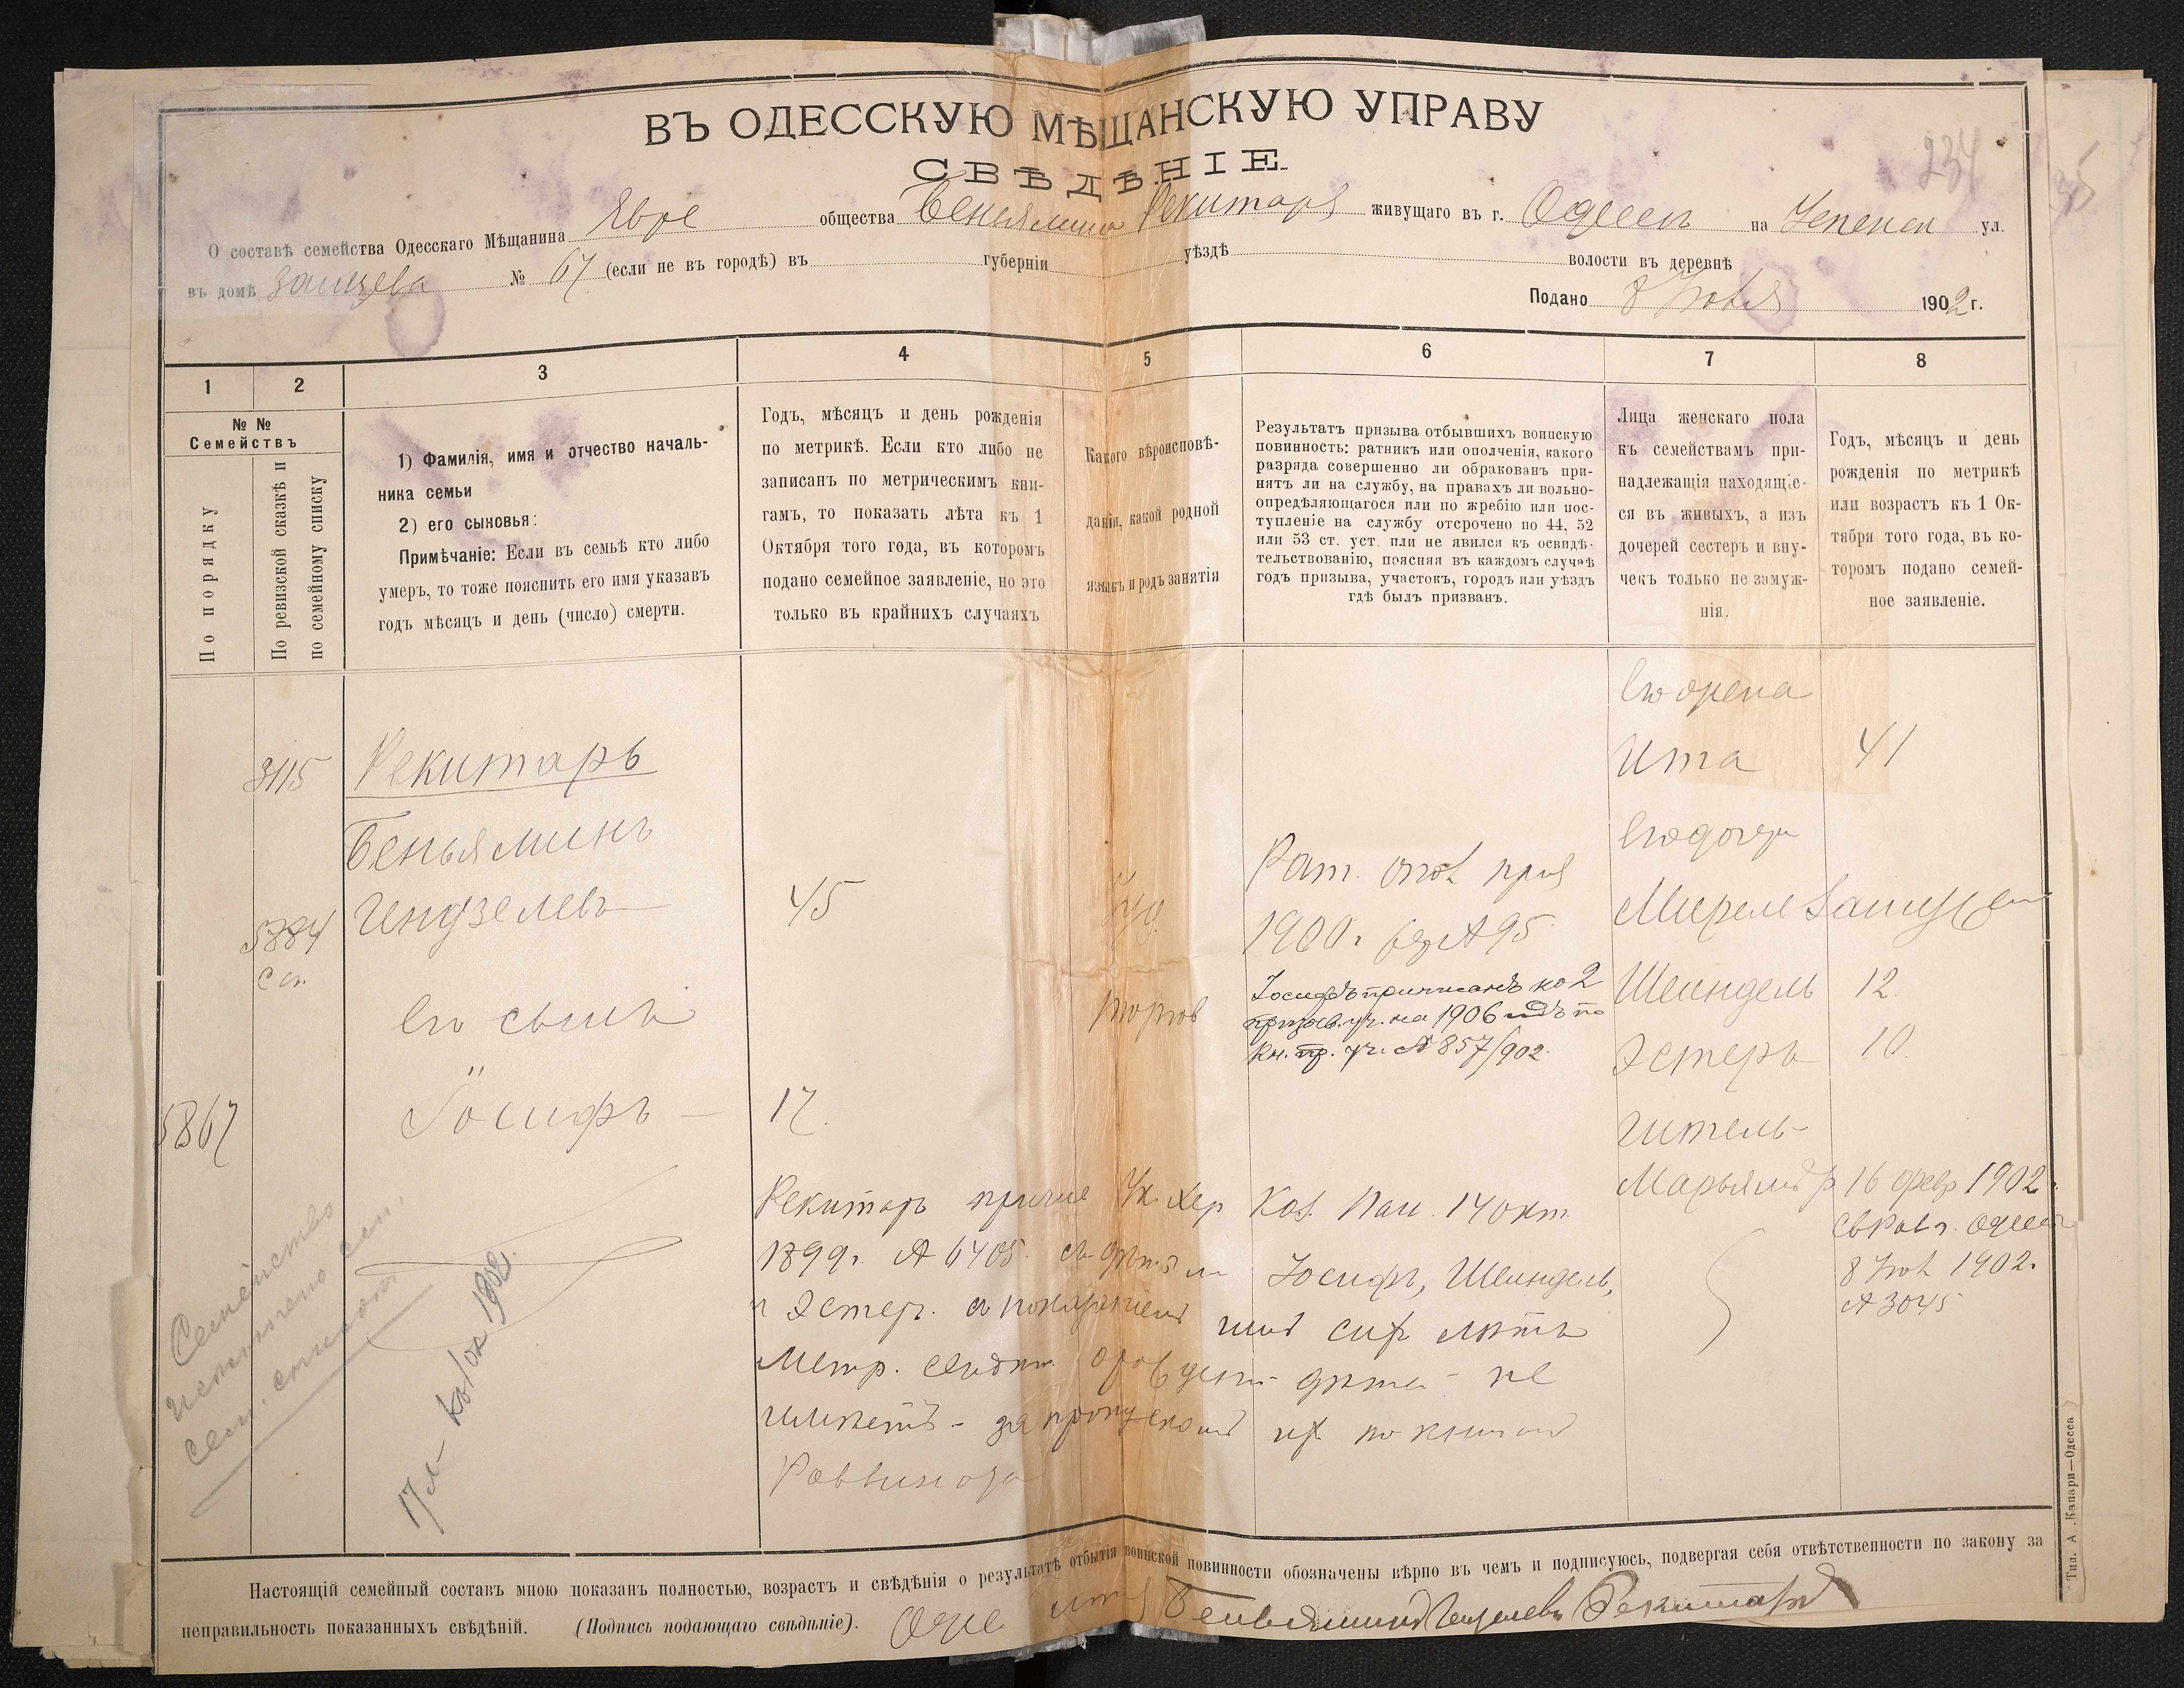 234
ВЪ ОДЕССКУЮ МѢЩАНСКУЮ УПРАВУ
СВѢДѢНІЕ.
О составѣ семейства Одесскаго Мѣщанина Евре общества Беньямина Рекитаря живущаго въ г. Одессѣ на ул.
въ домѣ Зайцева № 67 (если не въ городѣ) въ губерніи уѣздѣ волости въ деревнѣ
Подано 8 1902 г.
1 2 3 4 5 6 7 8
№ №
Семействъ
По порядку
По ревизской сказкѣ и
по семейному списку
1) Фамилія, имя и отчество началь-
ника семьи
2) его сыновья:
Примѣчаніе: Если въ семьѣ кто либо
умеръ, то тоже пояснить его имя указавъ
годъ мѣсяцъ и день (число) смерти.
Годъ, мѣсяцъ и день рожденія
по метрикѣ. Если кто либо не
записанъ по метрическимъ кни-
гамъ, то показать лѣта къ 1
Октября того года, въ которомъ
подано семейное заявленіе, но это
только въ крайнихъ случаяхъ
Какого вѣроисповѣ-
данія, какой родной
языкъ и родъ занятія
Результатъ призыва отбывшихъ воинскую
повинность: ратникъ или ополченія, какого
разряда совершенно ли обракованъ при-
нятъ ли на службу, на правахъ ли вольно-
опредѣляющагося или по жребію или пос-
тупленіе на службу отсрочено по 44, 52
или 53 ст. уст. или не явился къ освидѣ-
тельствованію, поясняя въ каждомъ случаѣ
годъ призыва, участокъ, городъ или уѣздъ
гдѣ былъ призванъ.
Лица женскаго пола
къ семействамъ при-
надлежащія находящіе-
ся въ живыхъ, а изъ
дочерей сестеръ и вну-
чекъ только не замуж-
нія.
Годъ, мѣсяцъ и день
рожденія по метрикѣ
или возрастъ къ 1 Ок-
тября того года, въ ко-
торомъ подано семей-
ное заявленіе.
3115
Рекитарь
Беньяминъ
5884
Гендзелевъ
45
его сынъ
Іосифъ
17.
5867
Іуд.
торгов
Рат. опол
1900 г. № 95
Іосифъ приписанъ ко 2
призыв. уч. на 1906 годъ по
кн. пр. уч. № 857/902.
его жена
Ита 41
его дочери
Мирелъ Замужем
Шейндель 12.
Эстеръ 10.
Гитель-
Марьямъ р 16 февр 1902
Одесс
8 1902.
№ 3045
Рекитарь Ук. Хер Каз. Пал. 14 окт
1899 г. № 6405. съ дѣтьми Іосифъ, Шейндель,
и Эстер. съ показаніемъ ими сих лѣтъ
Метр. дѣтей не
имѣетъ - за пропускомъ их по книгамъ
Раввината
Семейство
сем. списокъ
17 1902
Настоящій семейный составъ мною показанъ полностью, возрастъ и свѣдѣнія о результатѣ отбытія воинской повинности обозначены вѣрно въ чемъ и подписуюсь, подвергая себя отвѣтственности по закону за
неправильность показанныхъ свѣдѣній. (Подпись подающаго свѣдѣніе). Беньяминъ Гендзелевъ Рекитарь
Тип. А. Капари—Одесса